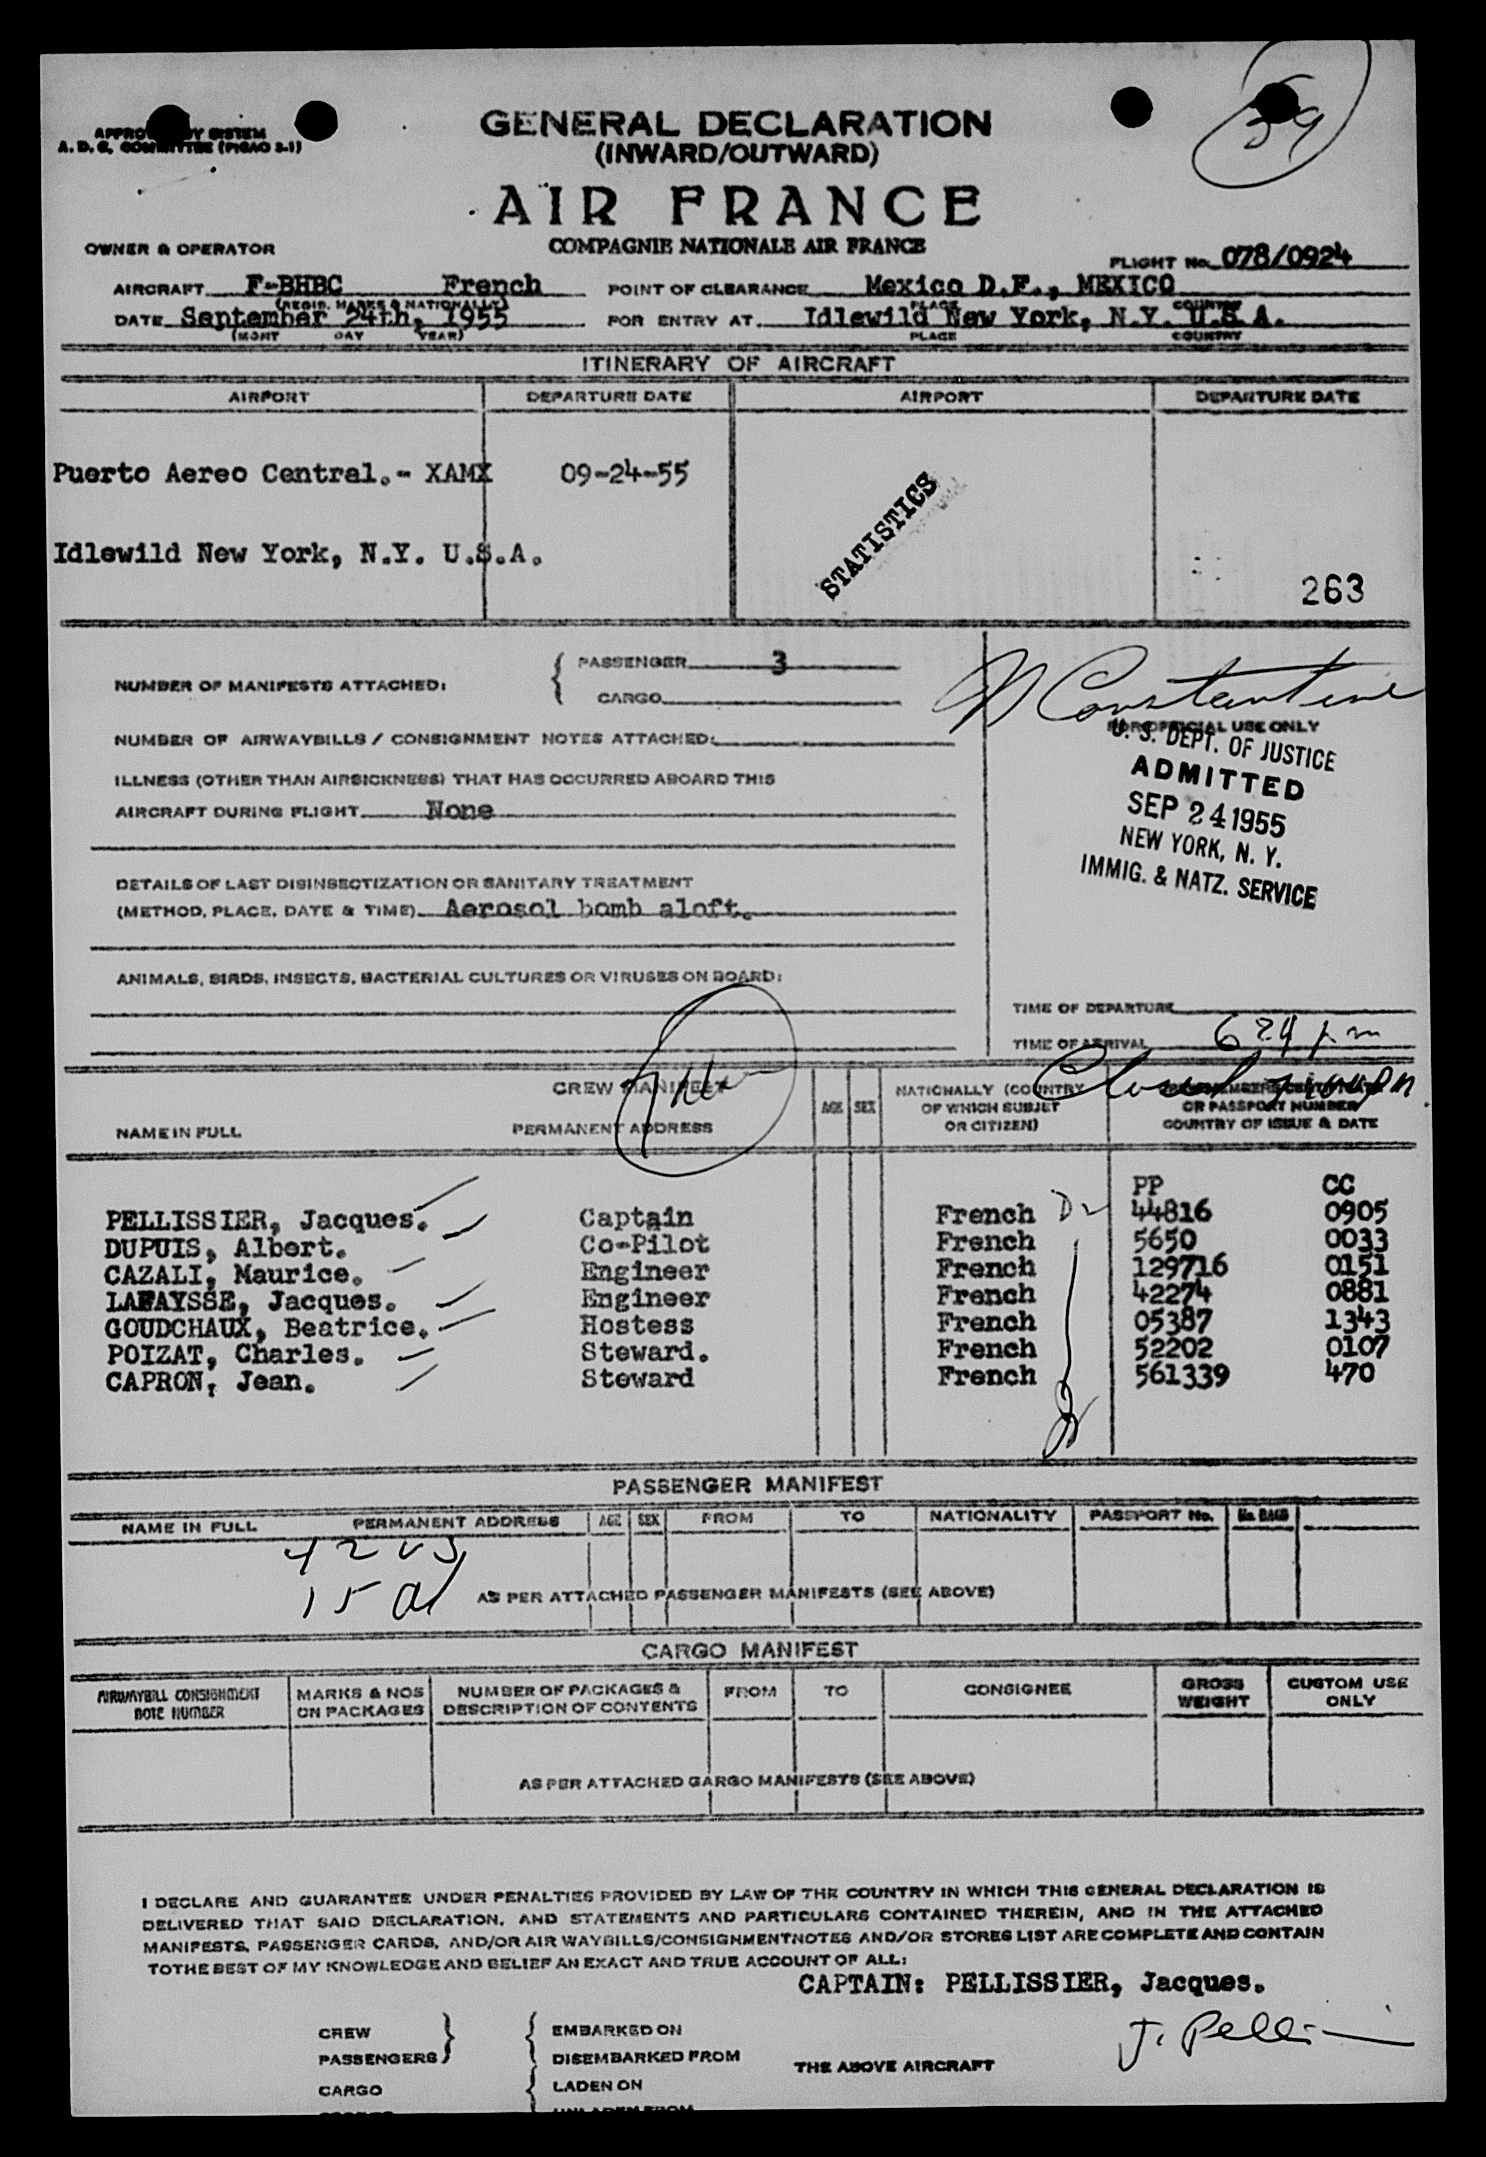 GENERAL DECLARATION
(INWARD/OUTWARD)
AIR FRANCE
COMPAGNIE NATIONALE AIR FRANCE
A. D. C. COMMITTEE (PICAO 2-1)
OWNER & OPERATOR
FLIGHT No. 078/0924
AIRCRAFT F-BHBC French POINT OF CLEARANCE Mexico D.F., MEXICO
(REGIS. MARKS & NATIONALLY) PLACE COUNTRY
DATE September 24th, 1955 FOR ENTRY AT. Idlewild New York, N.Y. U.S.A.
(MONT DAY YEAR) PLACE COUNTRY
ITINERARY OF AIRCRAFT
AIRPORT DEPARTURE DATE AIRPORT DEPARTURE DATE
Puerto Aereo Central.- XAMX 09-24-55
STATISTICS
Idlewild New York, N.Y. U.S.A.
263
NUMBER OF MANIFESTS ATTACHED: PASSENGER 3
CARGO
Constantine
FOR OFFICIAL USE ONLY
U. S. DEPT. OF JUSTICE
ADMITTED
SEP 24 1955
NEW YORK, N. Y.
IMMIG. & NATZ. SERVICE
NUMBER OF AIRWAYBILLS / CONSIGNMENT NOTES ATTACHED:
ILLNESS (OTHER THAN AIRSICKNESS) THAT HAS OCCURRED ABOARD THIS
AIRCRAFT DURING FLIGHT None
DETAILS OF LAST DISINSECTIZATION OR SANITARY TREATMENT
(METHOD, PLACE, DATE & TIME) Aerosol bomb aloft.
ANIMALS, BIRDS, INSECTS, BACTERIAL CULTURES OR VIRUSES ON BOARD:
TIME OF DEPARTURE
TIME OF ARRIVAL 6 24 pm
CREW MANIFEST
NAME IN FULL PERMANENT ADDRESS AGE SEX NATIONALLY (COUNTRY OF WHICH SUBJET OR CITIZEN) OR PASSPORT NUMBER COUNTRY OF ISSUE & DATE
PP CC
PELLISSIER, Jacques. Captain French 44816 0905
DUPUIS, Albert. Co-Pilot French 5650 0033
CAZALI, Maurice. Engineer French 129716 0151
LAFAYSSE, Jacques. Engineer French 42274 0881
GOUDCHAUX, Beatrice. Hostess French 05387 1343
POIZAT, Charles. Steward. French 52202 0107
CAPRON, Jean. Steward French 561339 470
PASSENGER MANIFEST
NAME IN FULL PERMANENT ADDRESS AGE SEX FROM TO NATIONALITY PASSPORT No. No. BAGS
AS PER ATTACHED PASSENGER MANIFESTS (SEE ABOVE)
CARGO MANIFEST
AIRWAYBILL CONSIGNMENT NOTE NUMBER MARKS & NOS ON PACKAGES NUMBER OF PACKAGES & DESCRIPTION OF CONTENTS FROM TO CONSIGNEE GROSS WEIGHT CUSTOM USE ONLY
AS PER ATTACHED CARGO MANIFESTS (SEE ABOVE)
I DECLARE AND GUARANTEE UNDER PENALTIES PROVIDED BY LAW OF THE COUNTRY IN WHICH THIS GENERAL DECLARATION IS
DELIVERED THAT SAID DECLARATION, AND STATEMENTS AND PARTICULARS CONTAINED THEREIN, AND IN THE ATTACHED
MANIFESTS, PASSENGER CARDS, AND/OR AIR WAYBILLS/CONSIGNMENTNOTES AND/OR STORES LIST ARE COMPLETE AND CONTAIN
TOTHE BEST OF MY KNOWLEDGE AND BELIEF AN EXACT AND TRUE ACCOUNT OF ALL:
CAPTAIN: PELLISSIER, Jacques.
CREW EMBARKED ON
PASSENGERS DISEMBARKED FROM THE ABOVE AIRCRAFT
CARGO LADEN ON